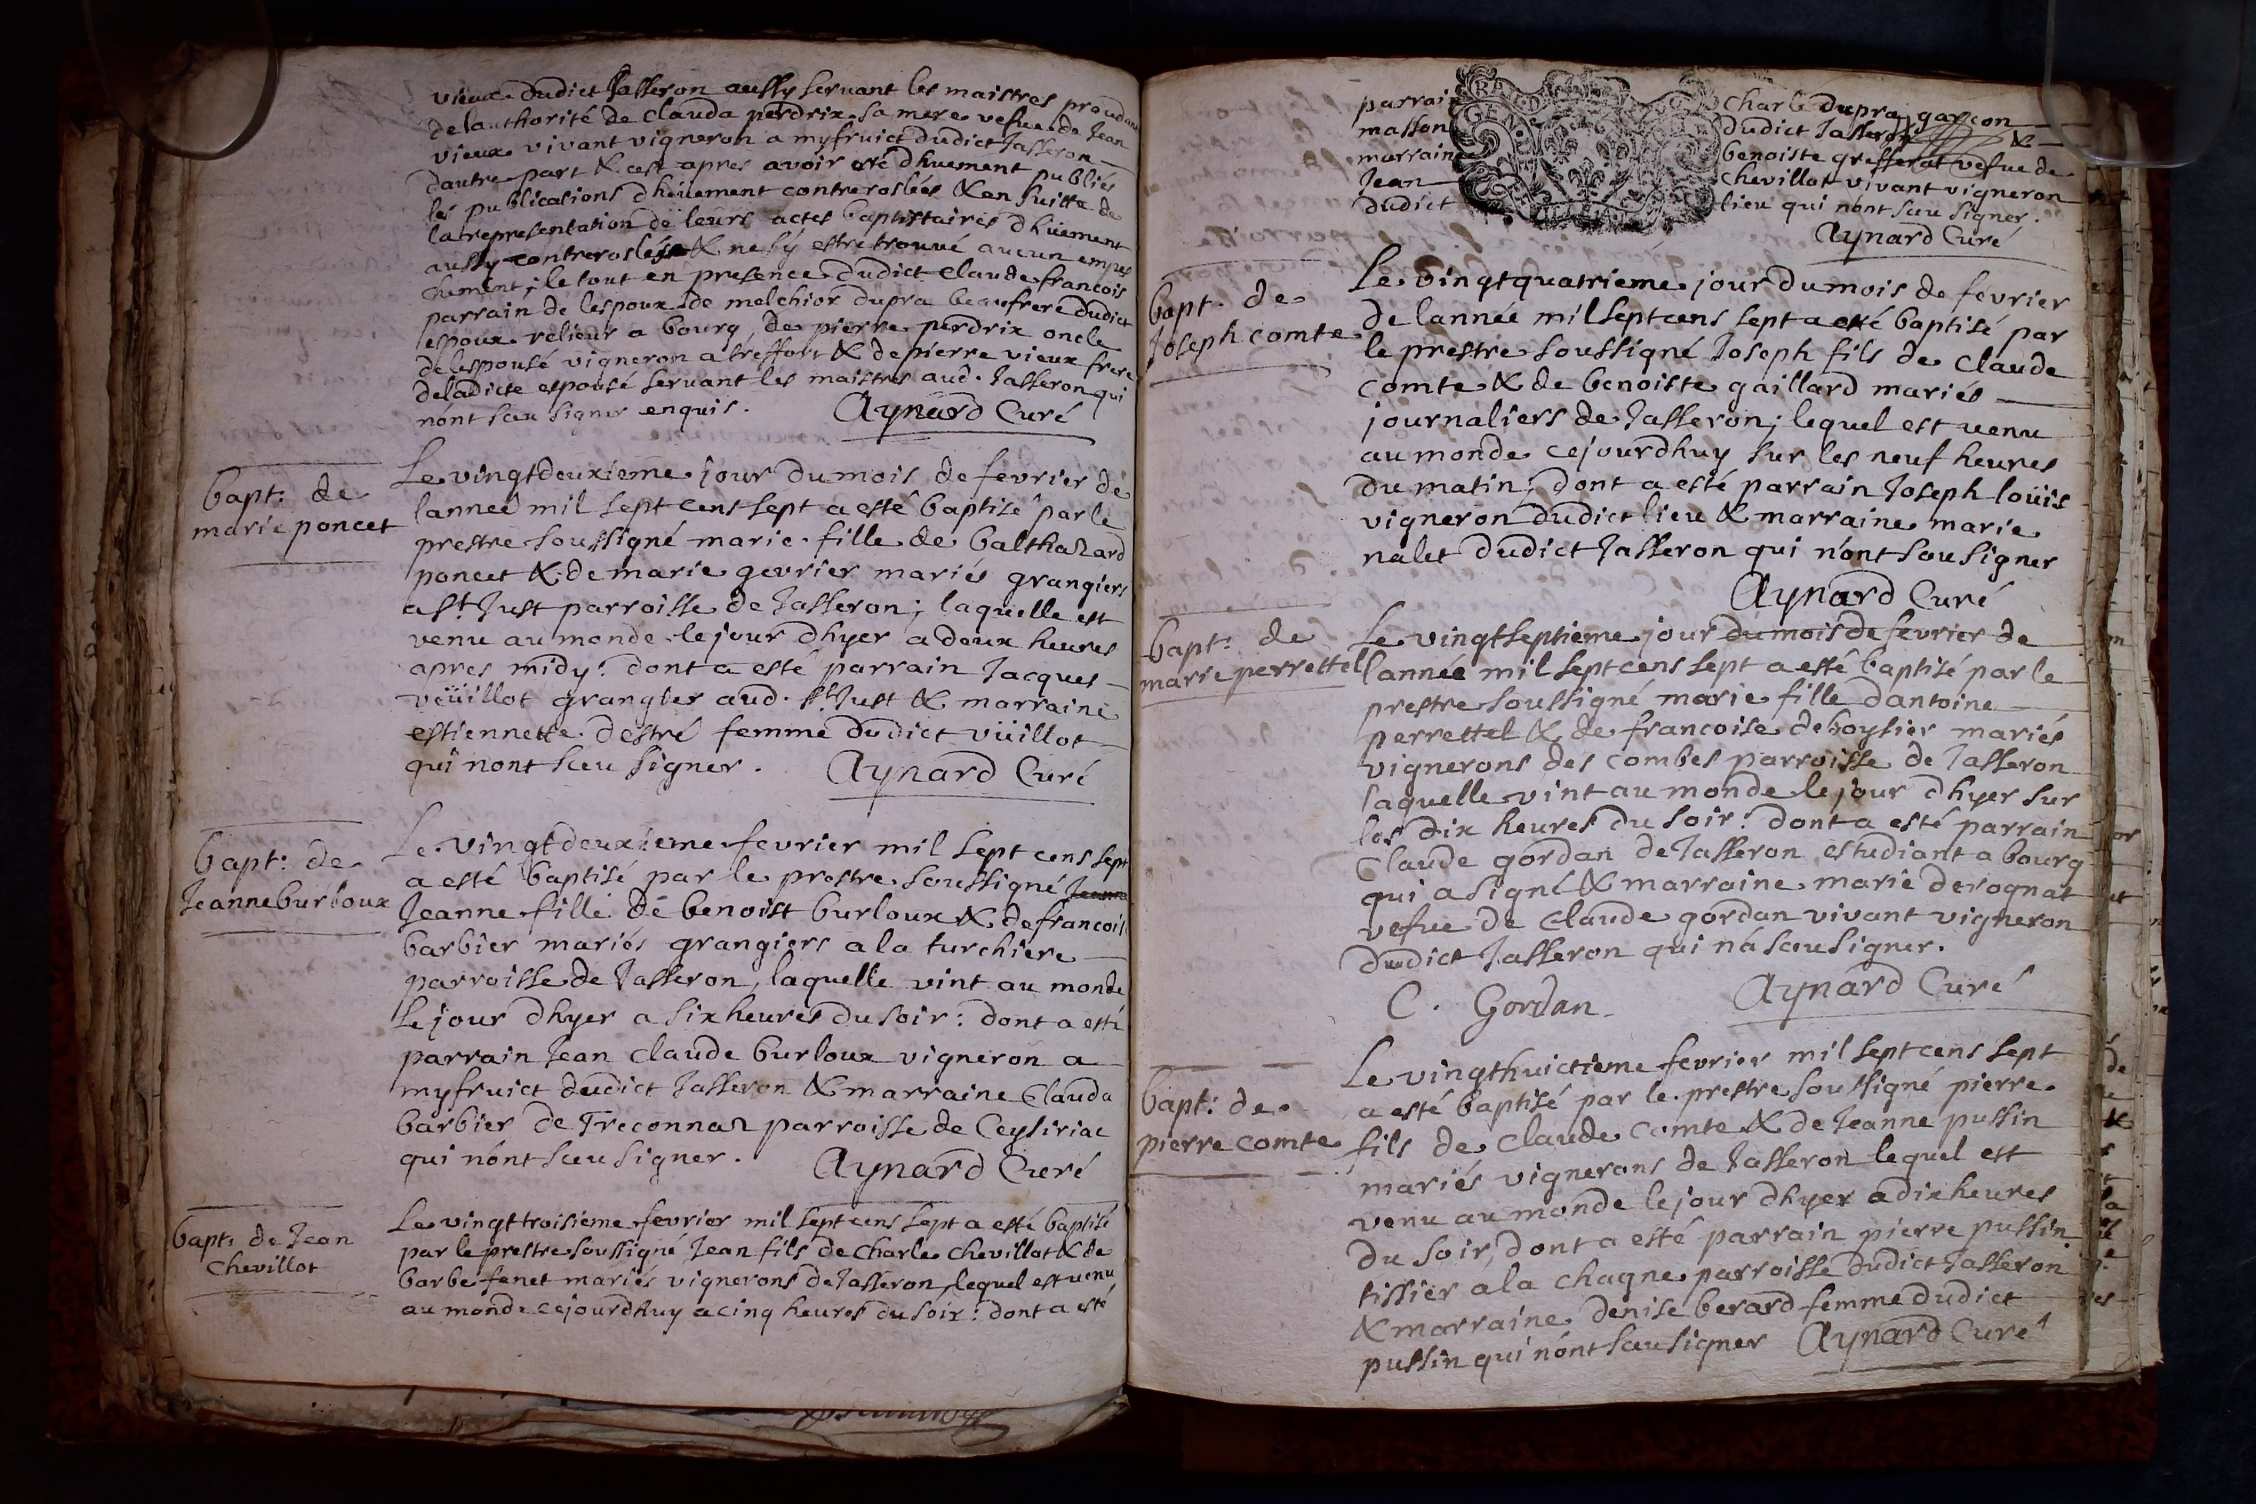 vieux dudict Jasseron aussy servant les maistres
delauthorité de Clauda perdrix sa mere vefue de Jean
vieux vivant vigneron a myfruict dudict Jasseron
dautre part & cest apres avoir dhuement publiés
les publications dhüement controrolées & en suitte de
la representation de leurs actes baptistaires dhüement
aussy controrolés & ne sÿ estre trouvé aucun empes
chement; le tout en presence dudict claude francois
parrain de lespoux de melchior dupra beaufrere dudict
espoux relieur a bourg, de pierre perdrix oncle
de lespousé vigneron a treffort & de pierre vieux frere
deladicte espousé servant les maistres aud. Jasseron qui
nónt sceu signer enquis. Aynard Curé
bapt: de
marie poncet
Le vingtdeuxieme jour du mois de fevrier de
lannée mil sept cens sept a esté baptisé par le
prestre soussigné marie fille de balthazard
poncet & de marie gevrier mariés grangiers
a St Just parroisse de Jasseron; laquelle est
venu au monde le jour dhyer a deux heures
apres midy: dont a esté parrain Jacques
veüillot grangier aud. St Just & marraine
estiennette destré femme dudict vüillot
qui nont sceu signer. Aynard Curé
bapt: de
Jeanne burloux
Le vingtdeuxieme fevrier mil sept cens sept
a esté baptisé par le prestre soussigné Jeanne
Jeanne fille de benoist burloux & de francois
barbier mariés grangiers a la turchiere
parroisse de Jasseron, laquelle vint au monde
le jour dhyer a six heures du soir: dont a esté
parrain Jean Claude burloux vigneron a
myfruict dudict Jasseron & marraine Clauda
barbier de Treconnaz parroisse de Ceysiriac
qui nónt sceu signer. Aynard Curé
bapt: de Jean
Chevillot
Le vingttroisieme fevrier mil sept cens sept a esté baptisé
par le prestre soussigné Jean fils de Charle Chevillot & de
barbe fenet mariés vignerons de Jasseron, lequel est venu
au monde cejourdhuy a cinq heures du soir: dont a esté
parrain Charle dupra, garcon
masson dudict Jasseron &
marraine benoiste grefferat vefue de
Jean Chevillot vivant vigneron
dudict lieu qui nónt sceu signer.
Aynard Curé
bapt. de
Joseph comte
Le vingtquatrieme jour du mois de février
de lannée mil sept cens sept a esté baptisé par
le prestre soussigné Joseph fils de Claude
comte & de benoiste gaillard mariés
journaliers de Jasseron; lequel est venu
au monde cejourdhuy sur les neuf heures
du matin; dont a esté parrain Joseph loüis
vigneron dudict lieu & marraine marie
nalet dudict Jasseron qui nónt sceu signer
Aynard Curé
bapt: de
marie perrettel
Le vingtseptieme jour du mois de fevrier de
lannée mil sept cens sept a esté baptisé par le
prestre soussigné marie fille dantoine
perrettel & de francoise deboysier mariés
vignerons des combes parroisse de Jasseron
laquelle vint au monde le jour dhyer sur
les dix heures du soir: dont a esté parrain
Claude gordan de Jasseron estudiant a bourg
qui a signé & marraine marie derognat
vefue de Claude gordan vivant vigneron
dudict Jasseron qui n'a sceu signer.
C. Gordan Aynard Curé
bapt: de
pierre comte
Le vingthuictieme fevrier mil sept cens sept
a esté baptisé par le prestre soussigné pierre
fils de Claude comte & de Jeanne pussin
mariés vignerons de Jasseron lequel est
venu au monde le jour dhyer a dix heures
du soir, dont a esté parrain pierre pussin
tissier a la chagne parroisse dudict Jasseron
& marraine denise berard femme dudict
pussin qui nónt sceu signer Aynard Curé